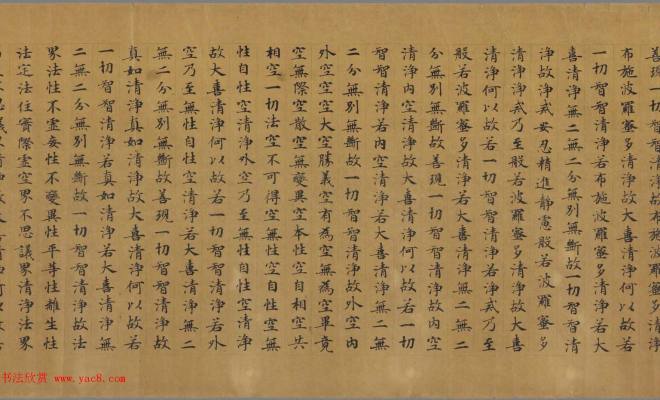 善現一切智智清淨故布施波羅蜜多清淨
布施波羅蜜多清淨故大喜清淨何以故若
一切智智清淨若布施波羅蜜多清淨若大
喜清淨無二無二分無別無斷故一切智智清
淨故淨戒安忍精進靜慮般若波羅蜜多
清淨淨戒乃至般若波羅蜜多清淨故大喜
清淨何以故若一切智智清淨若淨戒乃至
般若波羅蜜多清淨若大喜清淨無二無二
分無別無斷故善現一切智智清淨故內空
清淨內空清淨故大喜清淨何以故若一切
智智清淨若內空清淨若大喜清淨無二無
二分無別無斷故一切智智清淨故外空內
外空空空大空勝義空有為空無為空畢竟
空無際空散空無變異空本性空自相空共
相空一切法空不可得空無性空自性空無
性自性空清淨外空乃至無性自性空清淨
故大喜清淨何以故若一切智智清淨若外
空乃至無性自性空清淨若大喜清淨無二
無二分無別無斷故善現一切智智清淨故
真如清淨真如清淨故大喜清淨何以故若
一切智智清淨若真如清淨若大喜清淨無
二無二分無別無斷故一切智智清淨故法
界法性不虛妄性不變異性平等性離生性
法定法住實際虛空界不思議界清淨法界
书法欣赏 www.yac8.com